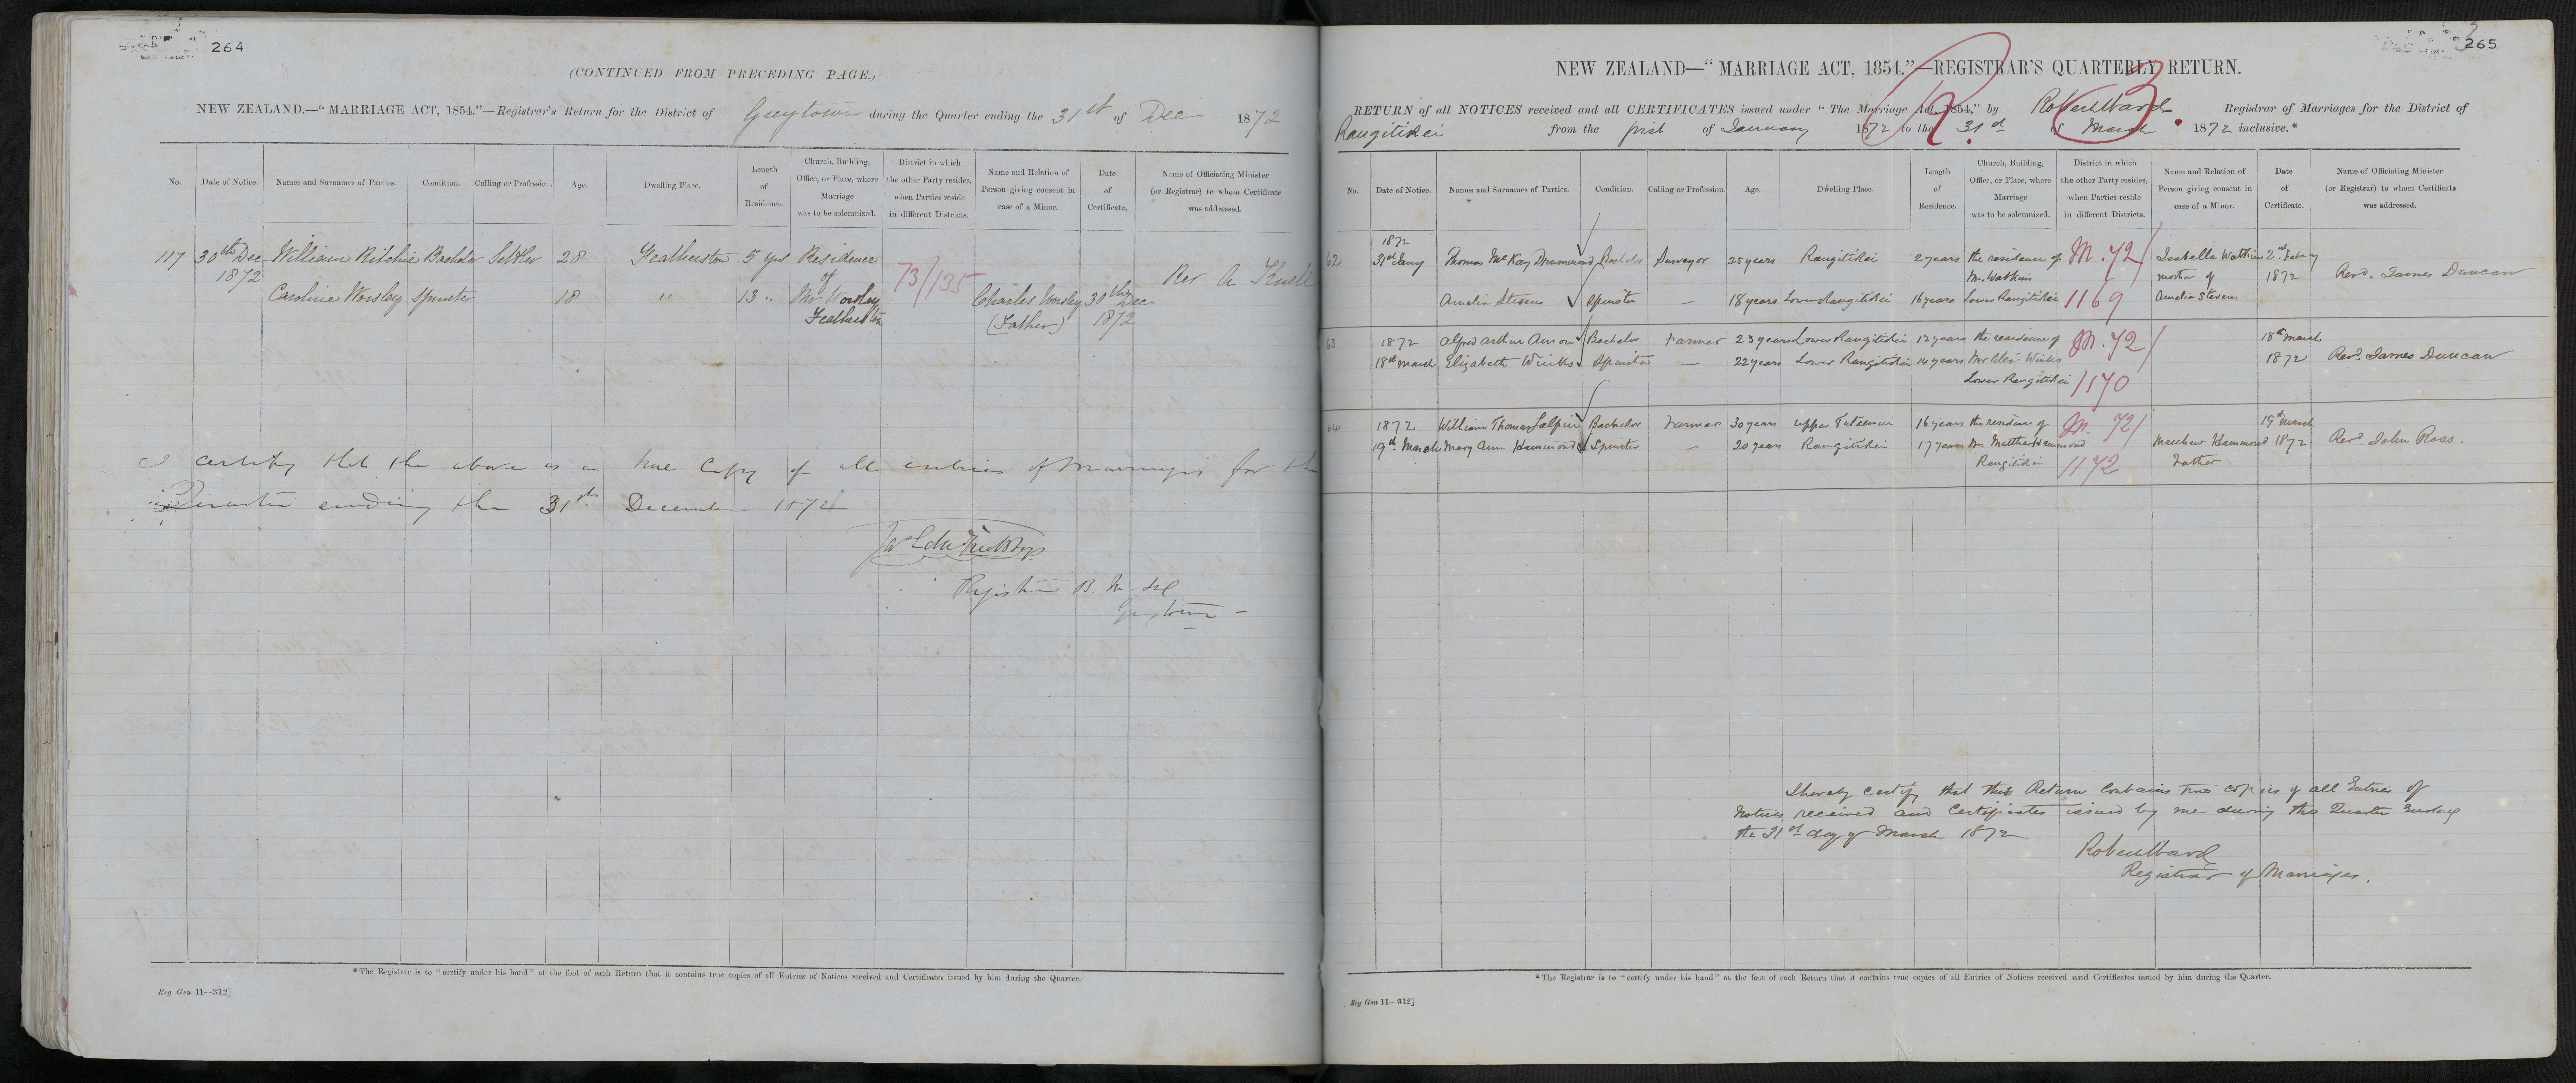 264
(CONTINUED FROM PRECEDING PAGE.)
NEW ZEALAND.—"MARRIAGE ACT, 1854."—Registrar's Return for the District of Greytown during the Quarter ending the 31st of Dec 1872
No. Date of Notice. Names and Surnames of Parties. Condition. Calling or Profession. Age. Dwelling Place. Length of Residence. Church, Building, Office, or Place, where Marriage was to be solemnized. District in which the other Party resides, when Parties reside in different Districts. Name and Relation of Person giving consent in case of a Minor. Date of Certificate. Name of Officiating Minister (or Registrar) to whom Certificate was addressed.
117 30th Dec William Ritchie Bachelor Settler 28 Featherston 5 yrs Residence
1872 of 73/135 Rev A
Caroline Worsley Spinster 18 " 13 " Mr Worsley Charles Worsley 30th Dec
Featherston (Father) 1872
I certify that the above is a true Copy of all entries of Marriages for the
Quarter ending the 31st December 1872
Registrar B. M.
Greytown
*The Registrar is to "certify under his hand" at the foot of each Return that it contains true copies of all Entries of Notices received and Certificates issued by him during the Quarter.
Reg Gen 11—312]
265
NEW ZEALAND—"MARRIAGE ACT, 1854."—REGISTRAR'S QUARTERLY RETURN.
RETURN of all NOTICES received and all CERTIFICATES issued under "The Marriage Act, 1854," by Robert Ward Registrar of Marriages for the District of
Rangitikei from the first of January 1872 to the 31st of March 1872 inclusive.*
No. Date of Notice. Names and Surnames of Parties. Condition. Calling or Profession. Age. Dwelling Place. Length of Residence. Church, Building, Office, or Place, where Marriage was to be solemnized. District in which the other Party resides, when Parties reside in different Districts. Name and Relation of Person giving consent in case of a Minor. Date of Certificate. Name of Officiating Minister (or Registrar) to whom Certificate was addressed.
1872
62 31st Jany Thomas McKay Drummond Bachelor Surveyor 25 years Rangitikei 2 years the residence of M. 72/ Isabella Watkins 2nd Febry
Mr. Watkins mother of 1872 Revd. James Duncan
Amelia Stevens Spinster — 18 years Lower Rangitikei 16 years Lower Rangitikei 1169 Amelia Stevens
63 1872 Alfred Arthur Bachelor Farmer 23 years Lower Rangitikei 12 years the residence of M. 72/ 18th March
18th March Elizabeth Winks Spinster — 22 years Lower Rangitikei 14 years Mr Alex. Winks 1872 Revd. James Duncan
Lower Rangitikei 1170
64 1872 William Thomas Bachelor Farmer 30 years Upper Tutaenui 16 years the residence of M. 72/ 19th March
19th March Mary Ann Hammond Spinster — 20 years Rangitikei 17 years Mr. Matthew Hammond Matthew Hammond 1872 Revd. John Ross.
Rangitikei 1172 Father
I hereby certify that this Return Contains true copies of all Entries of
Notices received and Certificates issued by me during the Quarter Ending
the 31st day of March 1872
Robert Ward
Registrar of Marriages.
*The Registrar is to "certify under his hand" at the foot of each Return that it contains true copies of all Entries of Notices received and Certificates issued by him during the Quarter.
Reg Gen 11—312]